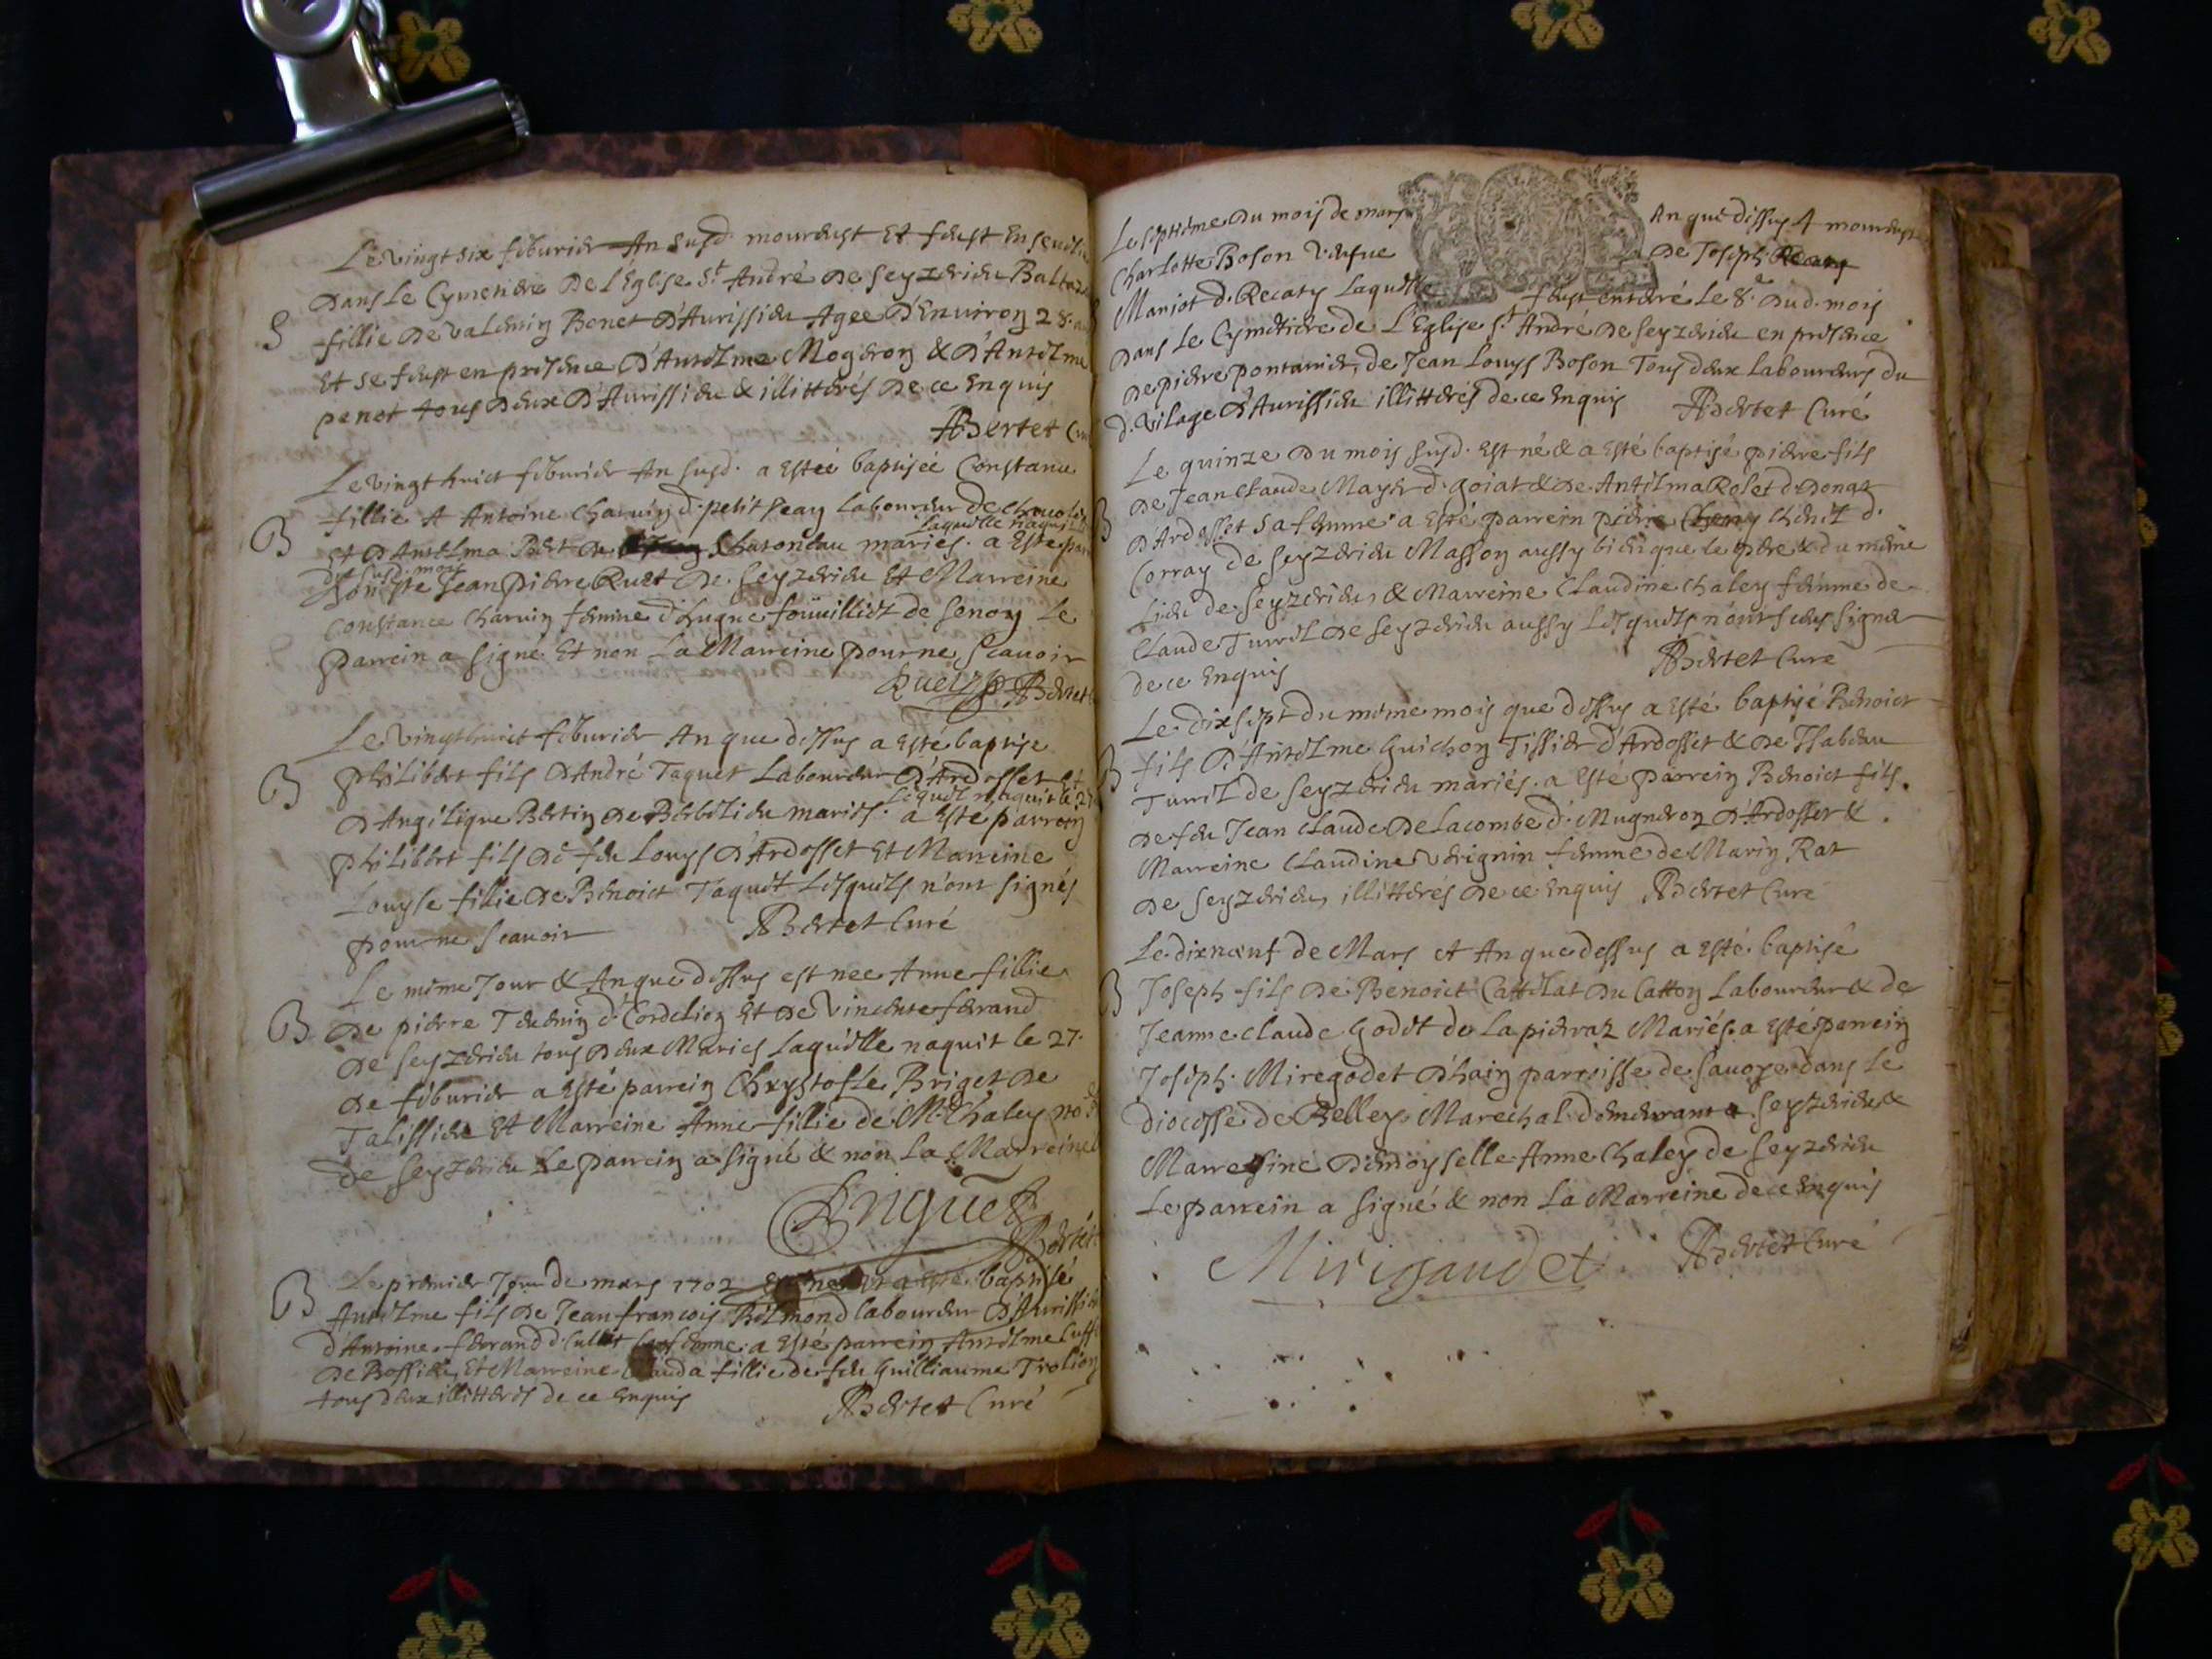 Le vingt six feburier An susd. mourust Et feust enseueli
Dans Le Cymetiere De L'Eglise St. André De Seyzerieu Baltaz
S
fillie De valentin Benet D'Aurissieu Agee D'Enuiron 28.
Et se feust en presence D'Antelme Mogeron & D'Antelme
penet tous Deux D'Aurissieu & illitterés De ce Enquis
ABertet Cu
Le vingt huict feburier An susd. a Esteé baptiseé Constance
B
fillie A Antoine Charuin d. petit Jean Laboureur de
laquelle naquit
Et D'Antelma Buet De Charondau mariés. a Esté par
dud. susd. mois
Jean pierre Ruet De Seyzerieu Et Marreine
Constance Charuin femme d'hugue foüuilliet de Senoy Le
parrein a signé Et non La Marreine pour ne Scauoir
Rueiz ABertet
Le vingt huict feburier An que dessus a Esté baptise
B
Philibert fils D'André Taquet Laboureur D'Ardosset et
Lequel naquit le 2
D'Angélique Bertin De Berbelieu mariés. a Esté parrein
Philibert fils De feu Louys D'Ardosset Et Marreine
Louyse fillie De Benoict Taquet Lesquels n'ont signés
pour ne scauoir ABertet Curé
Le mëme Jour & An que dessus est neé Anne fillie
B
De pierre Teuenin d. Cordelion Et De vincente ferand
De Seyzerieu tous Deux Mariés Laquelle naquit le 27.
De feburier a Esté parrein Chrystofle Briget De
Talissieu Et Marreine Anne fillie de Mr. Chaley no
De Seyzerieu Le parrein a signé & non La Marreine
Briguet
ABertet
B
Le premier Jour de mars 1702 Est né & a Esté baptisé
Antelme fils De Jean francois Belmond laboureur D'Aurissieu
d'Antoine ferrand d. Cullet sa femme. a Esté parrein Antelme
De Bossieu, Et Marreine Clauda fillie de feu Guilliaume Trolion
tous deux illitterés de ce Enquis
ABertet Curé
Le septieme Du mois de mars An que dessus 4 mourust
Charlotte Boson vefue De Joseph
Manjot d. Recaty Laquelle feust enterré Le 8e. Dud. mois
Dans Le Cymetiere de L'Eglise St. André De Seyzerieu en presence
De piere pontanier, de Jean Louys Boson Tous deux Laboureurs du
d. vilage D'Aurissieu illitterés de ce Enquis ABertet Curé
Le quinze Du mois susd. Est né & a Esté baptisé pierre fils
B
De Jean Claude Mayer d. goiat & De Antelma Rolet d. Donat
D'Ardosset sa femme a Esté parrein pierre Chenet d.
Corray de Seyzerieu Masson aussy bien que le pere & du mëme
Lieu de Seyzerieu, & Marreine Claudine Chaley femme de
Claude Turrel De Seyzerieu aussy Lesquels n'ont sceus signer
de ce Enquis ABertet Curé
Le dixsept du mëme mois que dessus a Esté baptisé Benoict
B
fils D'Antelme Guichon Tissier d'Ardosset & De Isabeau
Turrel de Seyzerieu mariés. a Esté parrein Benoict fils
De feu Jean Claude De Lacombe d. Mugneron D'Ardosset &
Marreine Claudine verignin femme de Marin Rat
De Seyzerieu illitterés De ce Enquis ABertet Curé
Le dixneuf de Mars et An que dessus a esté baptisé
B
Joseph fils De Benoict Cattelat Du Catton Laboureur & de
Jeanne Claude Godet de La pierraz Mariés. a Esté parrein
Joseph Miregodet D'hain parroisse de Sauoye dans Le
diocesse de Belley Marechal demeurant a Seyzerieu &
Marreine Demoyselle Anne Chaley de Seyzerieu
Le parrein a signé & non La Marreine de ce Enquis
Mirigaudet ABertet Curé